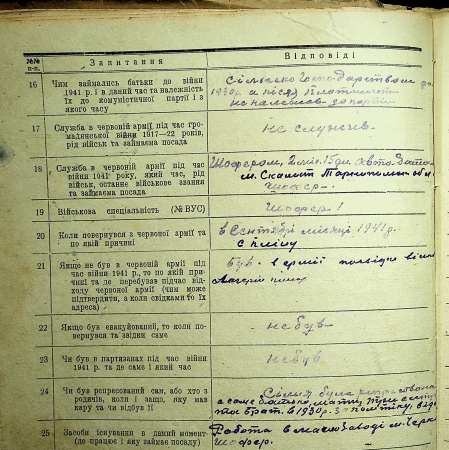 №№ п-п.
Запитання
Відповіді
16
Чим займались батьки до війни
1941 р. і в даний час та належність
їх до комуністичної партії і з
якого часу
Сільсько Господарством до
1930р. а після
не належив до партии
17
Служба в червоній армії під час гро-
мадянської війни 1917—22 років,
рід військ та займаєма посада
не служив.
18
Служба в червоній армії під час
війни 1941 року, який час, рід
військ, останнє військове звання
та займаєма посада
Шофером, 15
м. Скалат
шофер.
19
Військова спеціальність (№ ВУС)
Шофер
20
Коли повернувся з червоної армії та
по якій причині
в Сентябрі місяці 1941 р.
с пліну
21
Якщо не був в червоній армії під
час війни 1941 р., то по якій при-
чині та де перебував підчас від-
ходу червоної армії (чим може
підтвердити, а коли свідками то їх
адреса)
був. в армії
22
Якщо був евакуйований, то коли по-
вернувся та звідки саме
не був
23
Чи був в партизанах під час війни
1941 р. та де саме і який час
не був
24
Чи був репресований сам, або хто з
родичів, коли і защо, яку мав
кару та чи відбув її
Сімья була
а саме батько, мати,
брат. в 1930р. за
25
Засоби існування в даний момент
(де працює і яку займає посаду)
Работа в заводі м.
шофер.